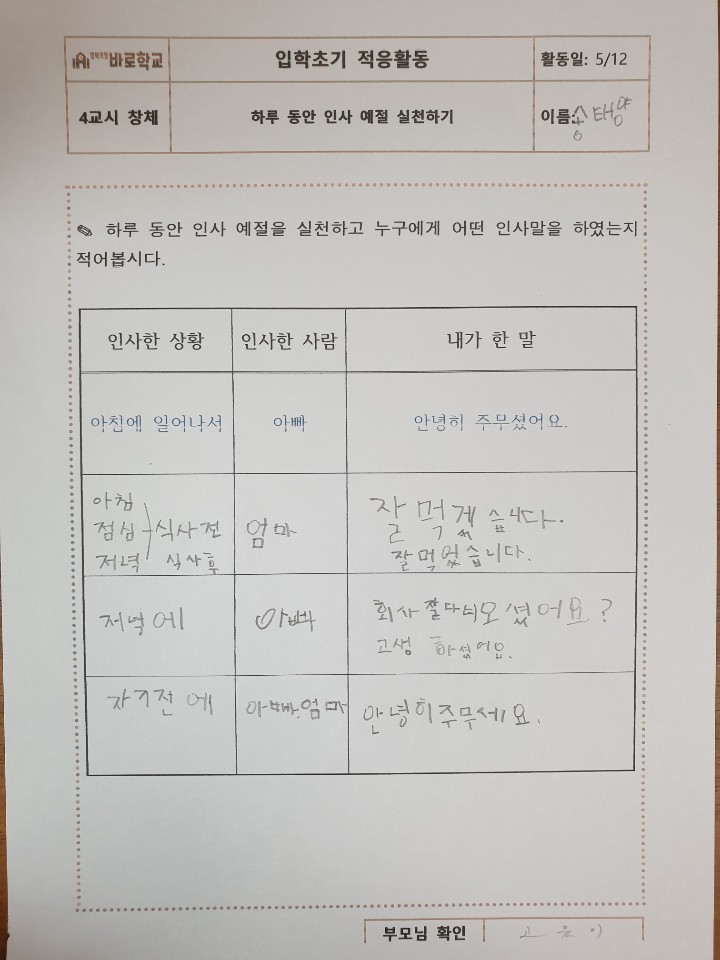 바로학교
입학초기 적응활동
활동일: 5/12
4교시 창체
하루 동안 인사 예절 실천하기
이름: 송태양
✎ 하루 동안 인사 예절을 실천하고 누구에게 어떤 인사말을 하였는지
적어봅시다.
인사한 상황
인사한 사람
내가 한 말
아침에 일어나서
아빠
안녕히 주무셨어요.
아침
점심 식사전
저녁 식사후
엄마
잘 먹겠습니다.
잘먹었습니다.
저녁에
아빠
회사 잘다녀오셨어요?
고생 하셨어요.
자기전에
아빠, 엄마
안녕히주무세요.
부모님 확인
고 은 이